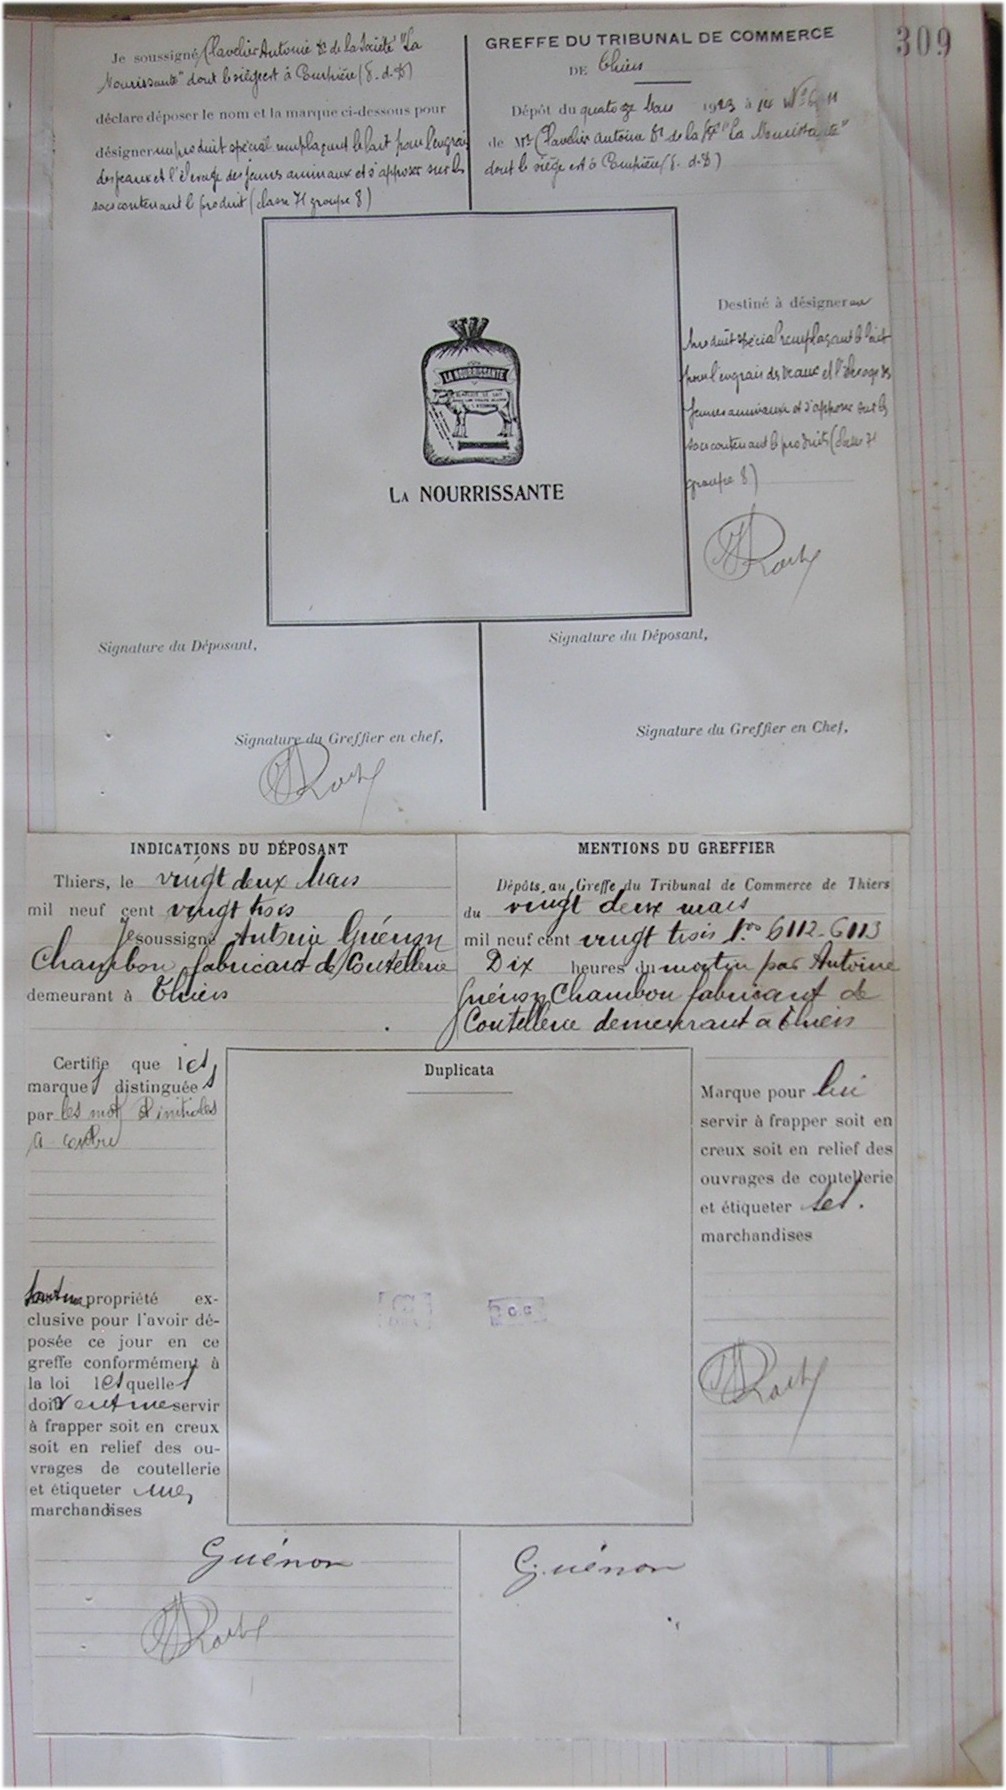 309
Je soussigné Clavelier Antoine Dr de la Société "La
Nourrissante" dont le siège est à Ponthière (P. d. D)
déclare déposer le nom et la marque ci-dessous pour
désigner un produit spécial remplaçant le lait pour l'engrais
des veaux et l'élevage des jeunes animaux et s'apposer sur les
sacs contenant le produit (classe 71 groupe 8)
GREFFE DU TRIBUNAL DE COMMERCE
DE Thiers
Dépôt du quatorze Mars 1923 à
de Mr Clavelier Antoine Dr de la Sté "La Nourrissante"
dont le siège est à (P. d. D)
LA NOURRISSANTE
LA NOURRISSANTE
Destiné à désigner un
produit spécial remplaçant le lait
pour l'engrais des veaux et l'élevage des
jeunes animaux et s'apposer sur les
sacs contenant le produits (classe 71
groupe 8)
Signature du Déposant,
Signature du Déposant,
Signature du Greffier en chef,
Signature du Greffier en Chef,
INDICATIONS DU DÉPOSANT
Thiers, le vingt deux Mars
mil neuf cent vingt trois
Je soussigné Antoine Guénon
Chambon fabricant de Coutellerie
demeurant à Thiers
MENTIONS DU GREFFIER
Dépôts au Greffe du Tribunal de Commerce de Thiers
du vingt deux mars
mil neuf cent vingt trois Nos 6112-6113
Dix heures du matin par Antoine
Guénon Chambon fabricant de
Coutellerie demeurant à Thiers
Certifie que les
marques distinguées
par les mots et initiales
a contre
sont ma propriété ex-
clusive pour l'avoir dé-
posée ce jour en ce
greffe conformément à
la loi lesquelles
doivent me servir
à frapper soit en creux
soit en relief des ou-
vrages de coutellerie
et étiqueter mes
marchandises
Duplicata
C.G
Marque pour lui
servir à frapper soit en
creux soit en relief des
ouvrages de coutellerie
et étiqueter ses
marchandises
Guénon
Guénon